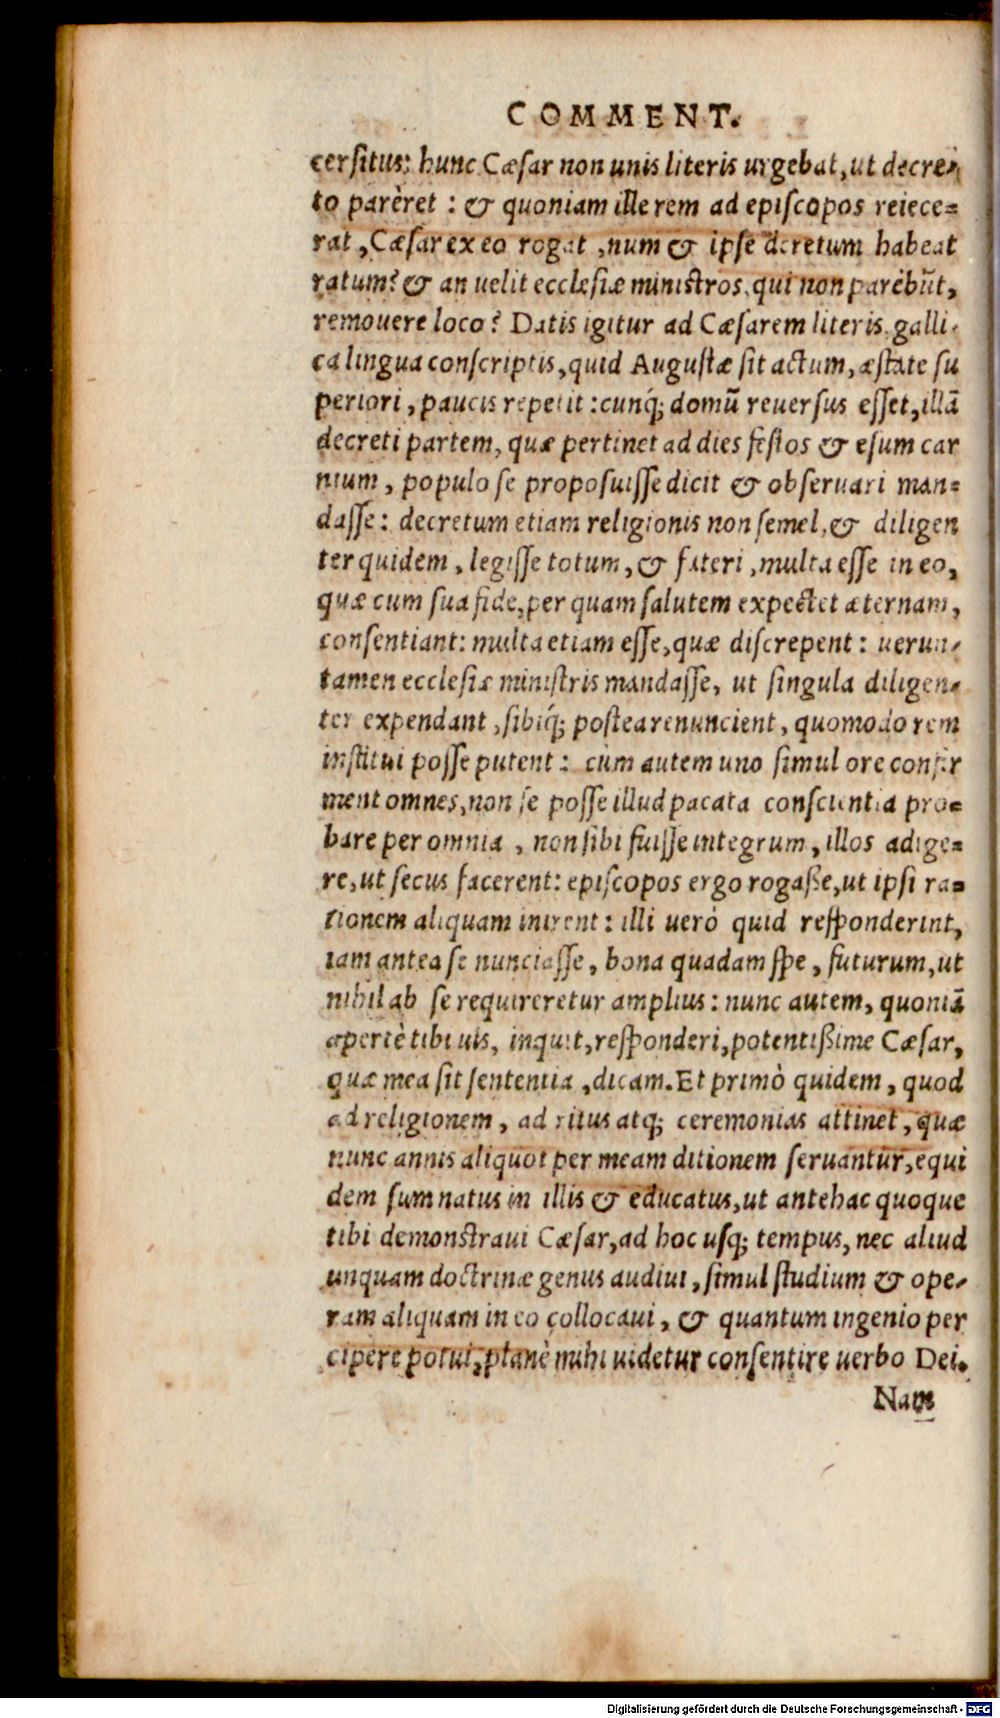 COMMENT.
cersitus: hunc Cæsar non unis literis urgebat, ut decre-
to parêret : & quoniam ille rem ad episcopos reiece=
rat, Cæsar ex eo rogat, num & ipse decretum habeat
ratum? & an uelit ecclesiæ ministros, qui non parêbũt,
remouere loco? Datis igitur ad Cæsarem literis galli-
ca lingua conscriptis, quid Augustæ sit actum, æstate su
periori, paucis repetit: cunq́; domũ reuersus esset, illã
decreti partem, quæ pertinet ad dies festos & esum car
nium, populo se proposuisse dicit & obseruari man=
dasse: decretum etiam religionis non semel, & diligen
ter quidem, legisse totum, & fateri, multa esse in eo,
quæ cum sua fide, per quam salutem expectet æternam,
consentiant: multa etiam esse, quæ discrepent: uerun-
tamen ecclesiæ ministris mandasse, ut singula diligen-
ter expendant, sibiq́; postea renuncient, quomodo rem
institui posse putent: cùm autem uno simul ore confir
ment omnes, non se posse illud pacata conscientia pro=
bare per omnia, non sibi fuisse integrum, illos adige=
re, ut secus facerent: episcopos ergo rogaße, ut ipsi ra=
tionem aliquam inirent: illi uerò quid responderint,
iam antea se nunciasse, bona quadam spe, futurum, ut
nihil ab se requireretur amplius: nunc autem, quoniã
apertè tibi uis, inquit, responderi, potentißime Cæsar,
quæ mea sit sententia, dicam. Et primò quidem, quod
ad religionem, ad ritus atq; ceremonias attinet, quæ
nunc annis aliquot per meam ditionem seruantur, equi
dem sum natus in illis & educatus, ut antehac quoque
tibi demonstraui Cæsar, ad hoc usq; tempus, nec aliud
unquam doctrinæ genus audiui, simul studium & ope-
ram aliquam in eo collocaui, & quantum ingenio per
cipere potui, planè mihi uidetur consentire uerbo Dei.
Nam
Digitalisierung gefördert durch die Deutsche Forschungsgemeinschaft - DFG